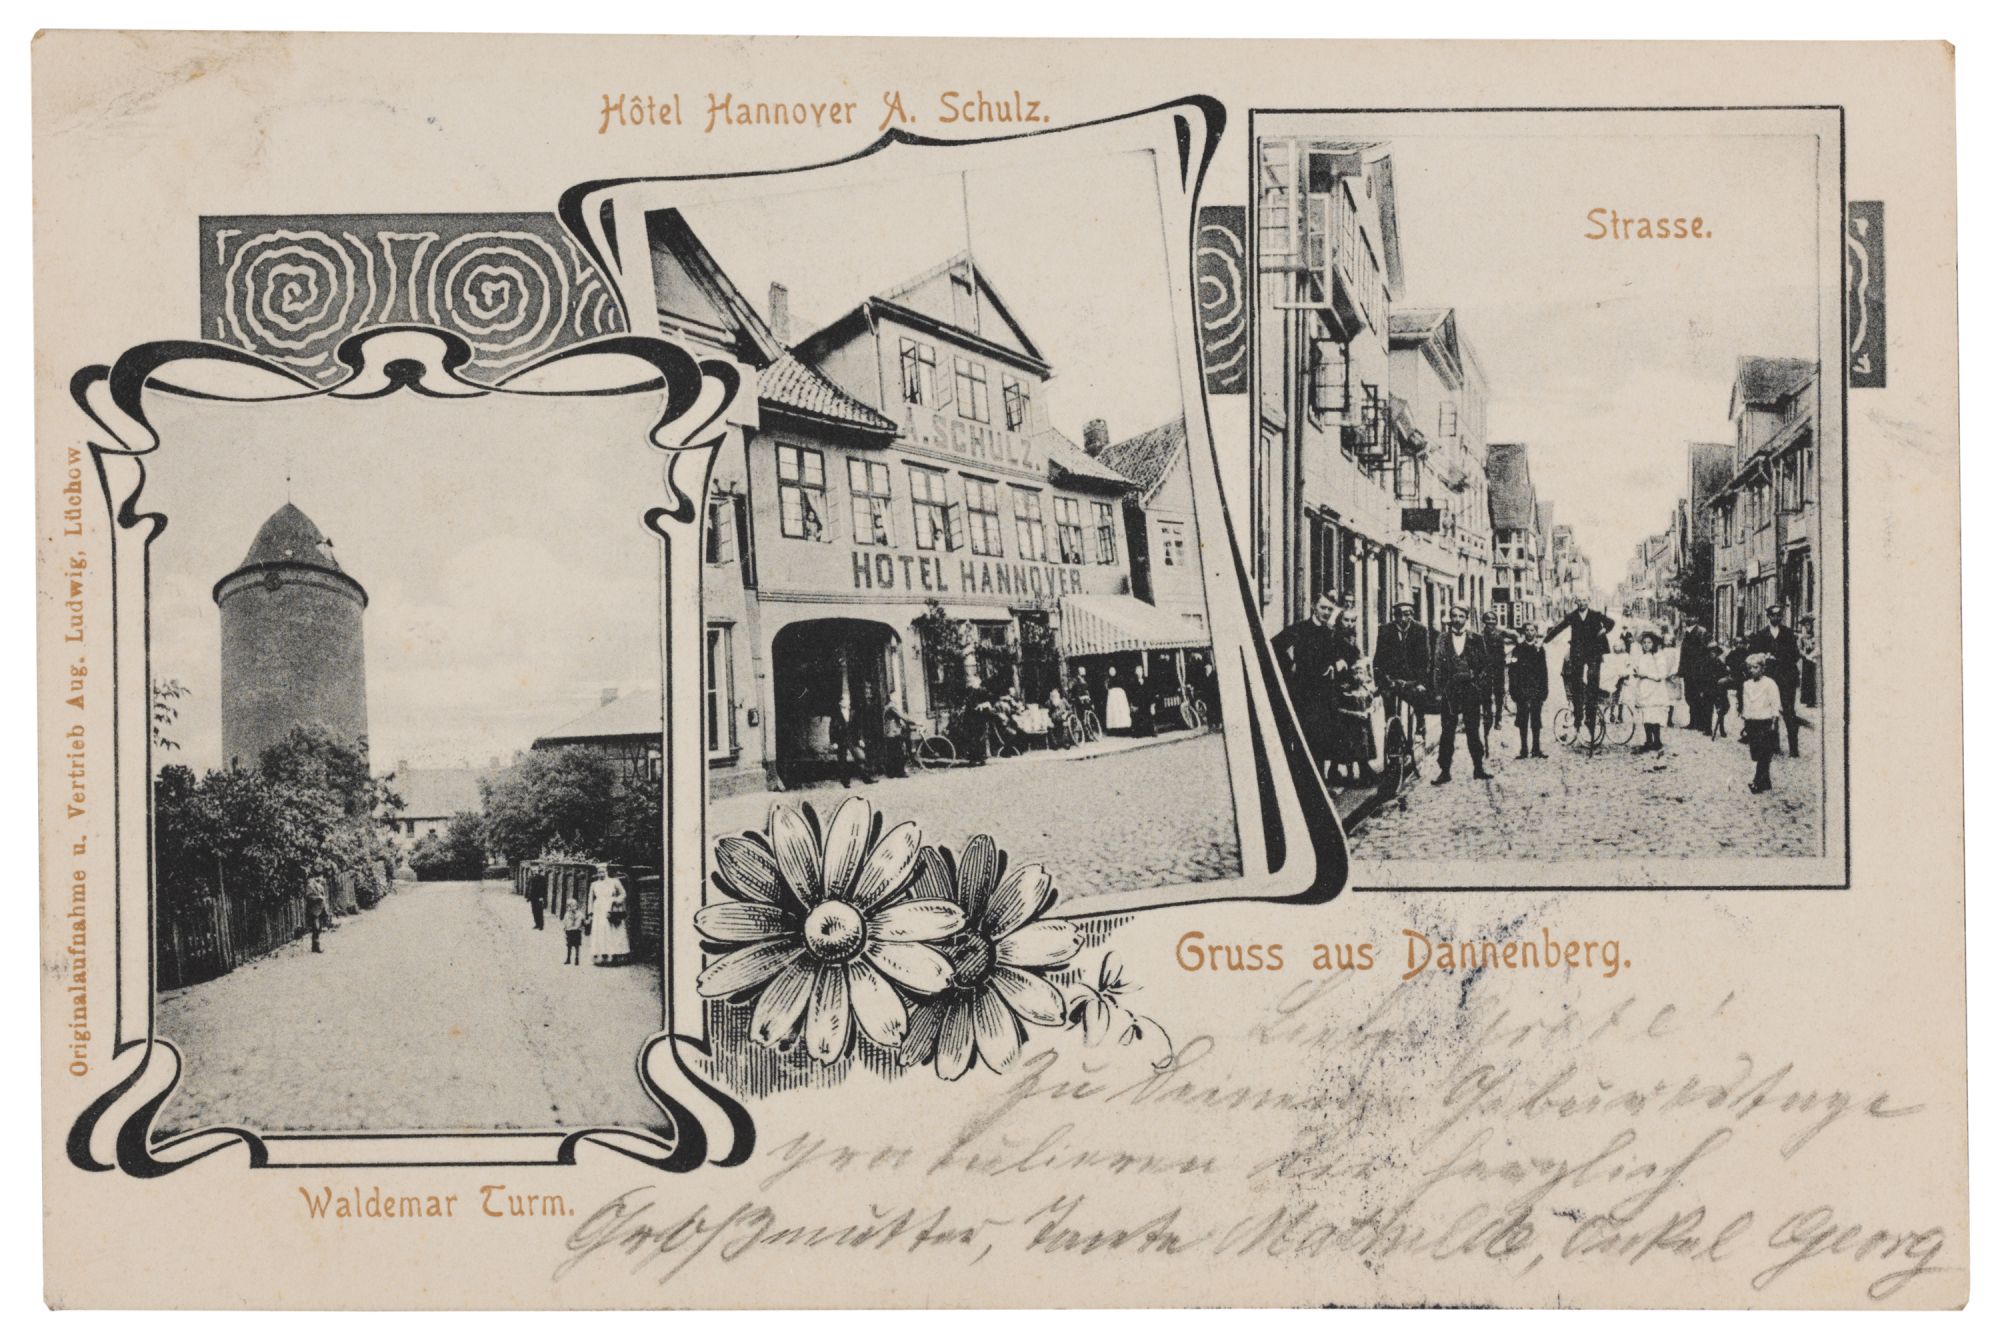 Hôtel Hannover A. Schulz.
Strasse.
A. SCHULZ.
HOTEL HANNOVER.
Originalaufnahme u. Vertrieb Aug. Ludwig, Lüchow.
Gruss aus Dannenberg.
Waldemar Turm.
Liebe Grete!
Zu Deinem Geburtstage
gratulieren Dir herzlich
Großmutter, Tante Mathilde, Onkel Georg